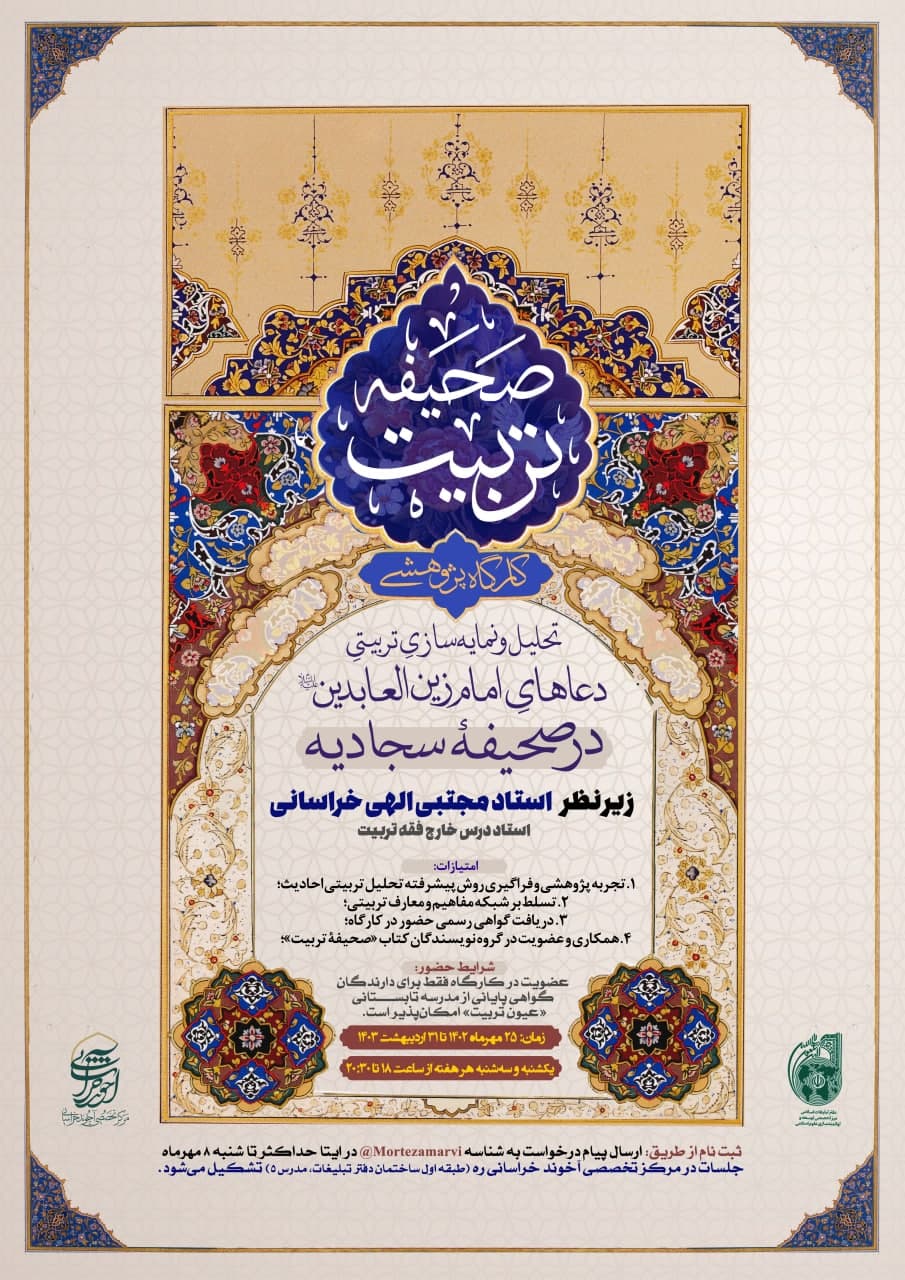 صَحیفه
تربیت
کارگاه پژوهشے
تحلیل و نمایه‌سازیِ تربیتیِ
دعاهایِ امام زین العابدین علیه‌السلام
در صحیفۀ سجادیه
زیر نظر استاد مجتبی الهی خراسانی
استاد درس خارج فقه تربیت
امتیازات:
۱. تجربه پژوهشی و فراگیری روش پیشرفته تحلیل تربیتی احادیث؛
۲. تسلط بر شبکه مفاهیم و معارف تربیتی؛
۳. دریافت گواهی رسمی حضور در کارگاه؛
۴. همکاری و عضویت در گروه نویسندگان کتاب «صحیفۀ تربیت»؛
شرایط حضور:
عضویت در کارگاه فقط برای دارندگان
گواهی پایانی از مدرسه تابستانی
«عیون تربیت» امکان‌پذیر است.
زمان: ۲۵ مهرماه ۱۴۰۲ تا ۳۱ اردیبهشت ۱۴۰۳
یکشنبه و سه‌شنبه هر هفته از ساعت ۱۸ تا ۲۰:۳۰
آخوند خراسانی
مرکز تخصصی آخوند خراسانی
دفتر تبلیغات اسلامی
ثبت نام از طریق: ارسال پیام درخواست به شناسه @Mortezamarvi در ایتا حداکثر تا شنبه ۸ مهرماه
جلسات در مرکز تخصصی آخوند خراسانی ره (طبقه اول ساختمان دفتر تبلیغات، مدرس ۵) تشکیل می‌شود.